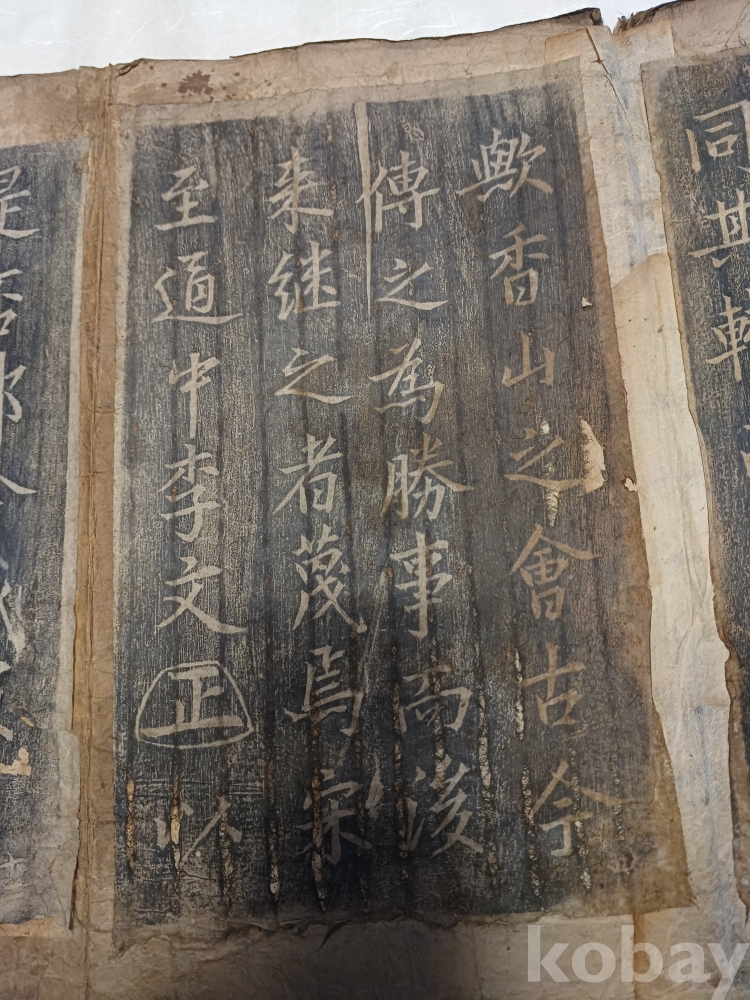 同其
歟香山之會古今
傳之為勝事而後
来继之者蔑焉宋
至道中李文正以
是
kobay